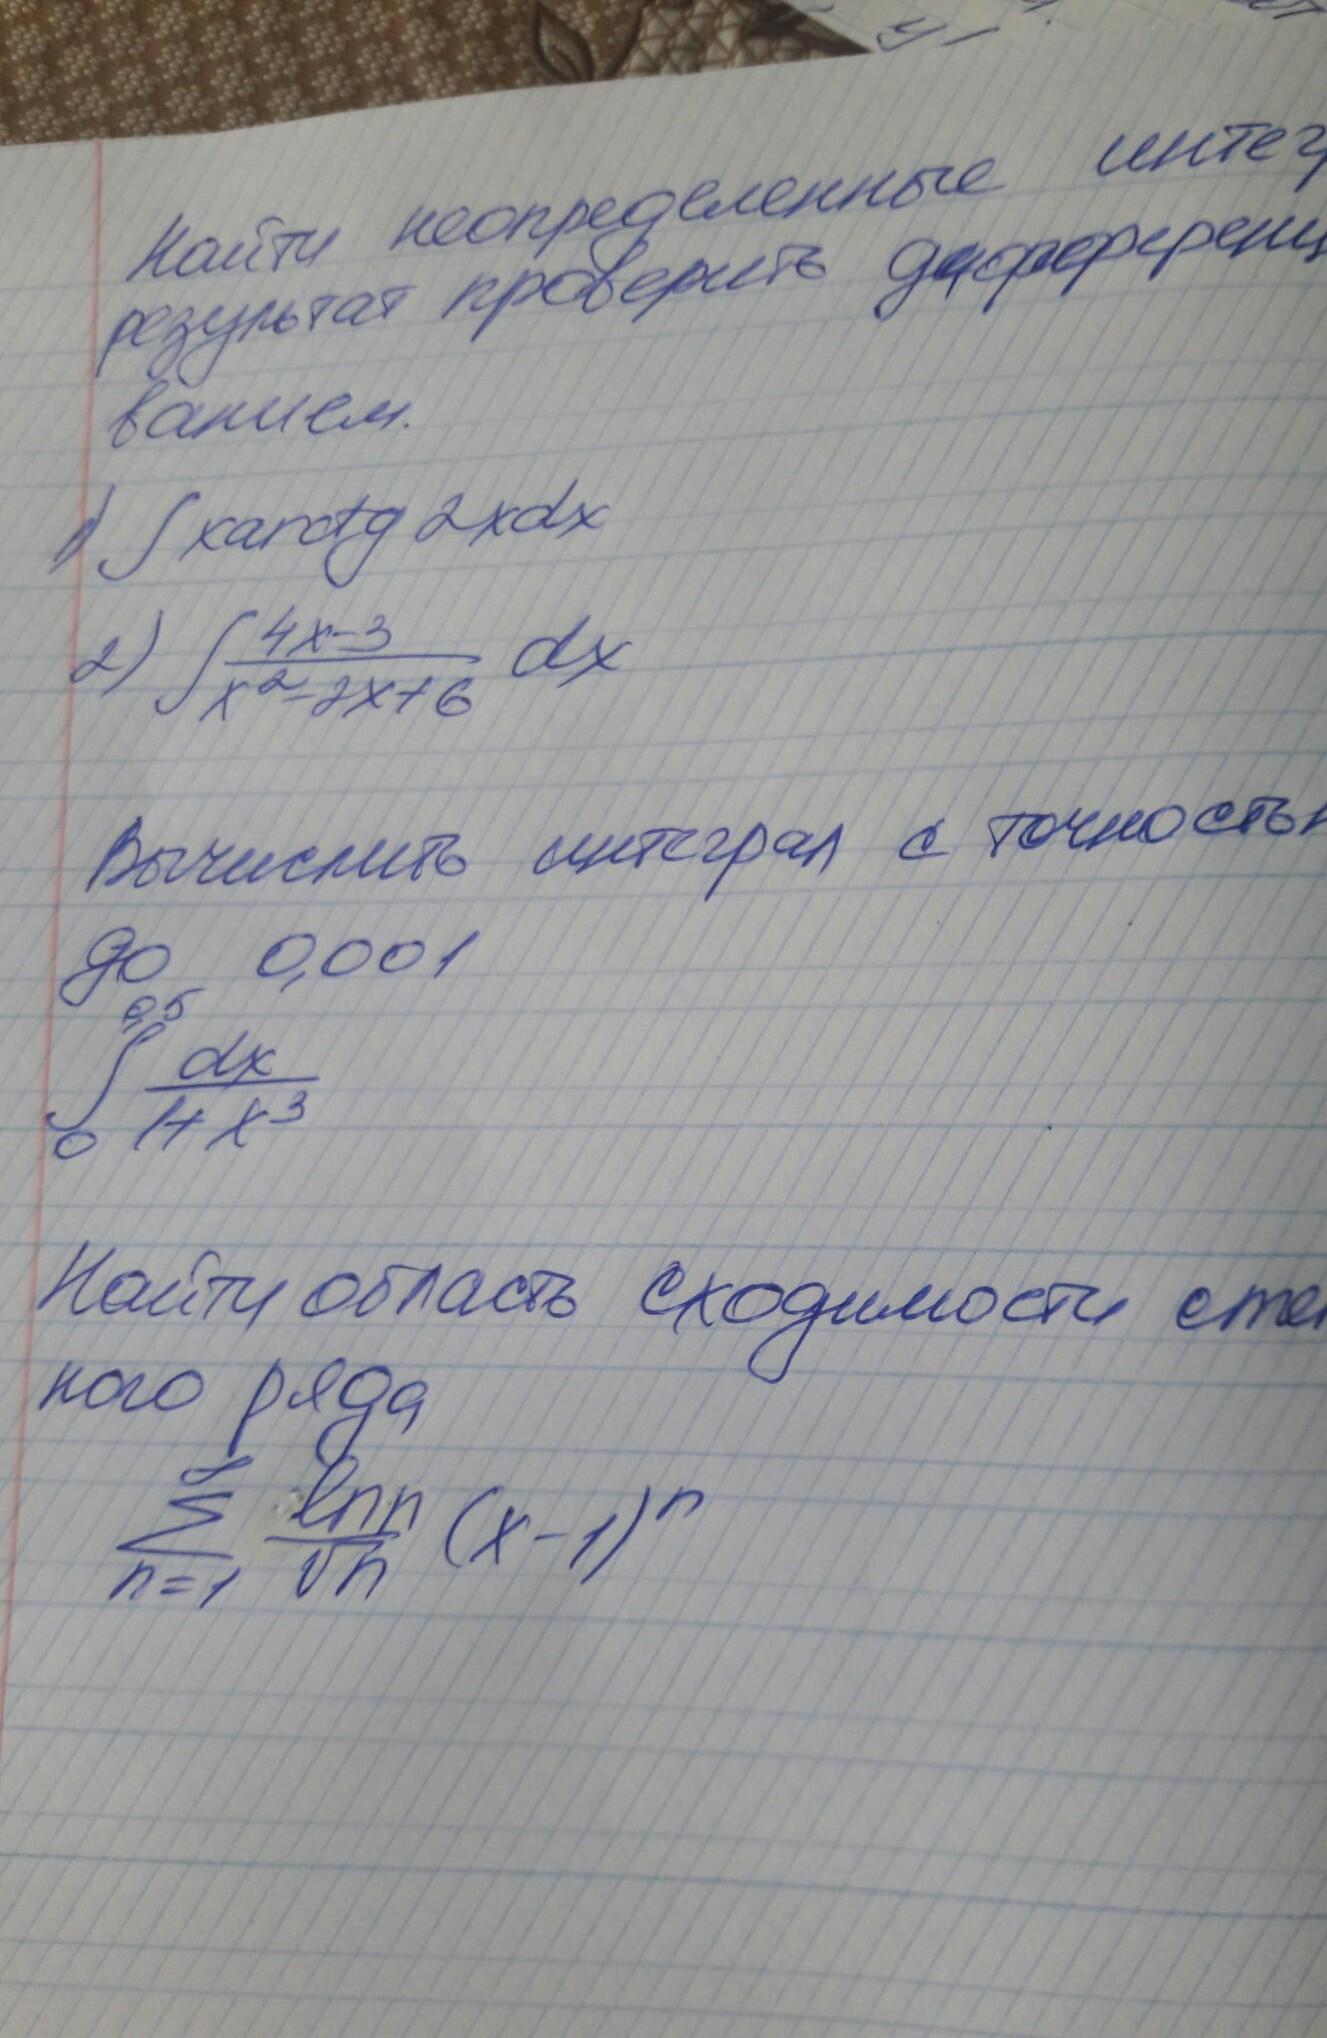 Найти неопределенные интег
результат проверить дифференц
ванием.
1) ∫ xarctg 2xdx
2) ∫ (4x-3)/(x²-2x+6) dx
Вычислить интеграл с точность
до 0,001
∫₀^0,5 dx/(1+x³)
Найти область сходимости степ
ного ряда
∑_{n=1}^∞ (ln n)/(√n) (x-1)ⁿ